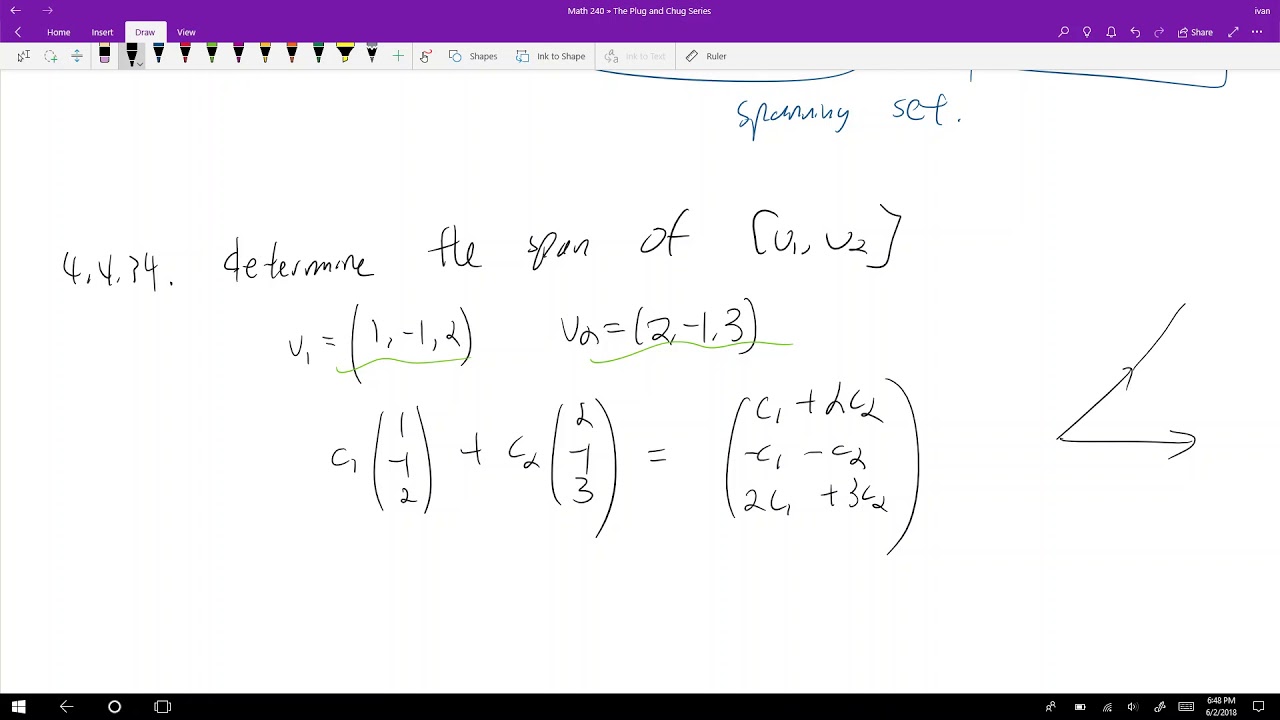 Math 240 » The Plug and Chug Series
ivan
Home Insert Draw View
Share
Shapes Ink to Shape Ink to Text Ruler
spanning set.
4.4.34. determine the span of [v₁, v₂]
v₁ = (1, -1, 2) v₂ = (2, -1, 3)
c₁ (1 -1 2) + c₂ (2 -1 3) = (c₁ + 2c₂ -c₁ - c₂ 2c₁ + 3c₂)
6:48 PM
6/2/2018